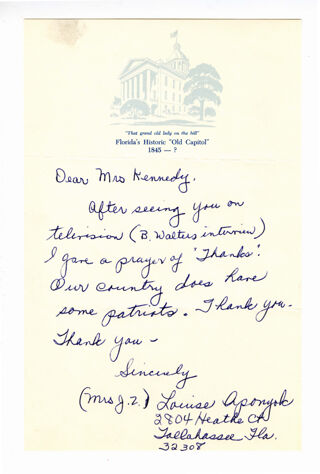 "That grand old lady on the hill"
Florida's Historic "Old Capitol"
1845 — ?
Dear Mrs Kennedy,
After seeing you on
television (B. Walters interview)
I gave a prayer of "Thanks".
Our country does have
some patriots. Thank you.
Thank you –
Sincerely
(Mrs J.Z.) Louise Aponyok
2804 Heathe Ct
Tallahassee Fla.
32308